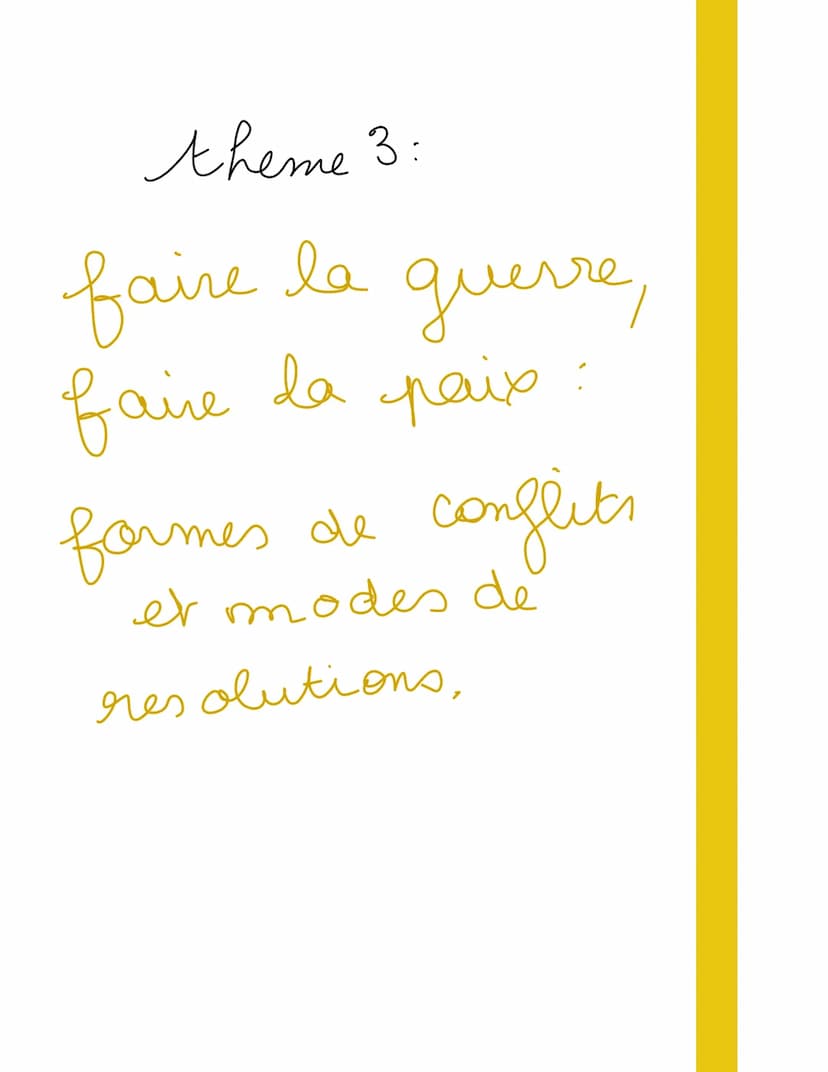 theme 3:
faire la guerre,
faire la paix :
formes de conflits
et modes de
resolutions.